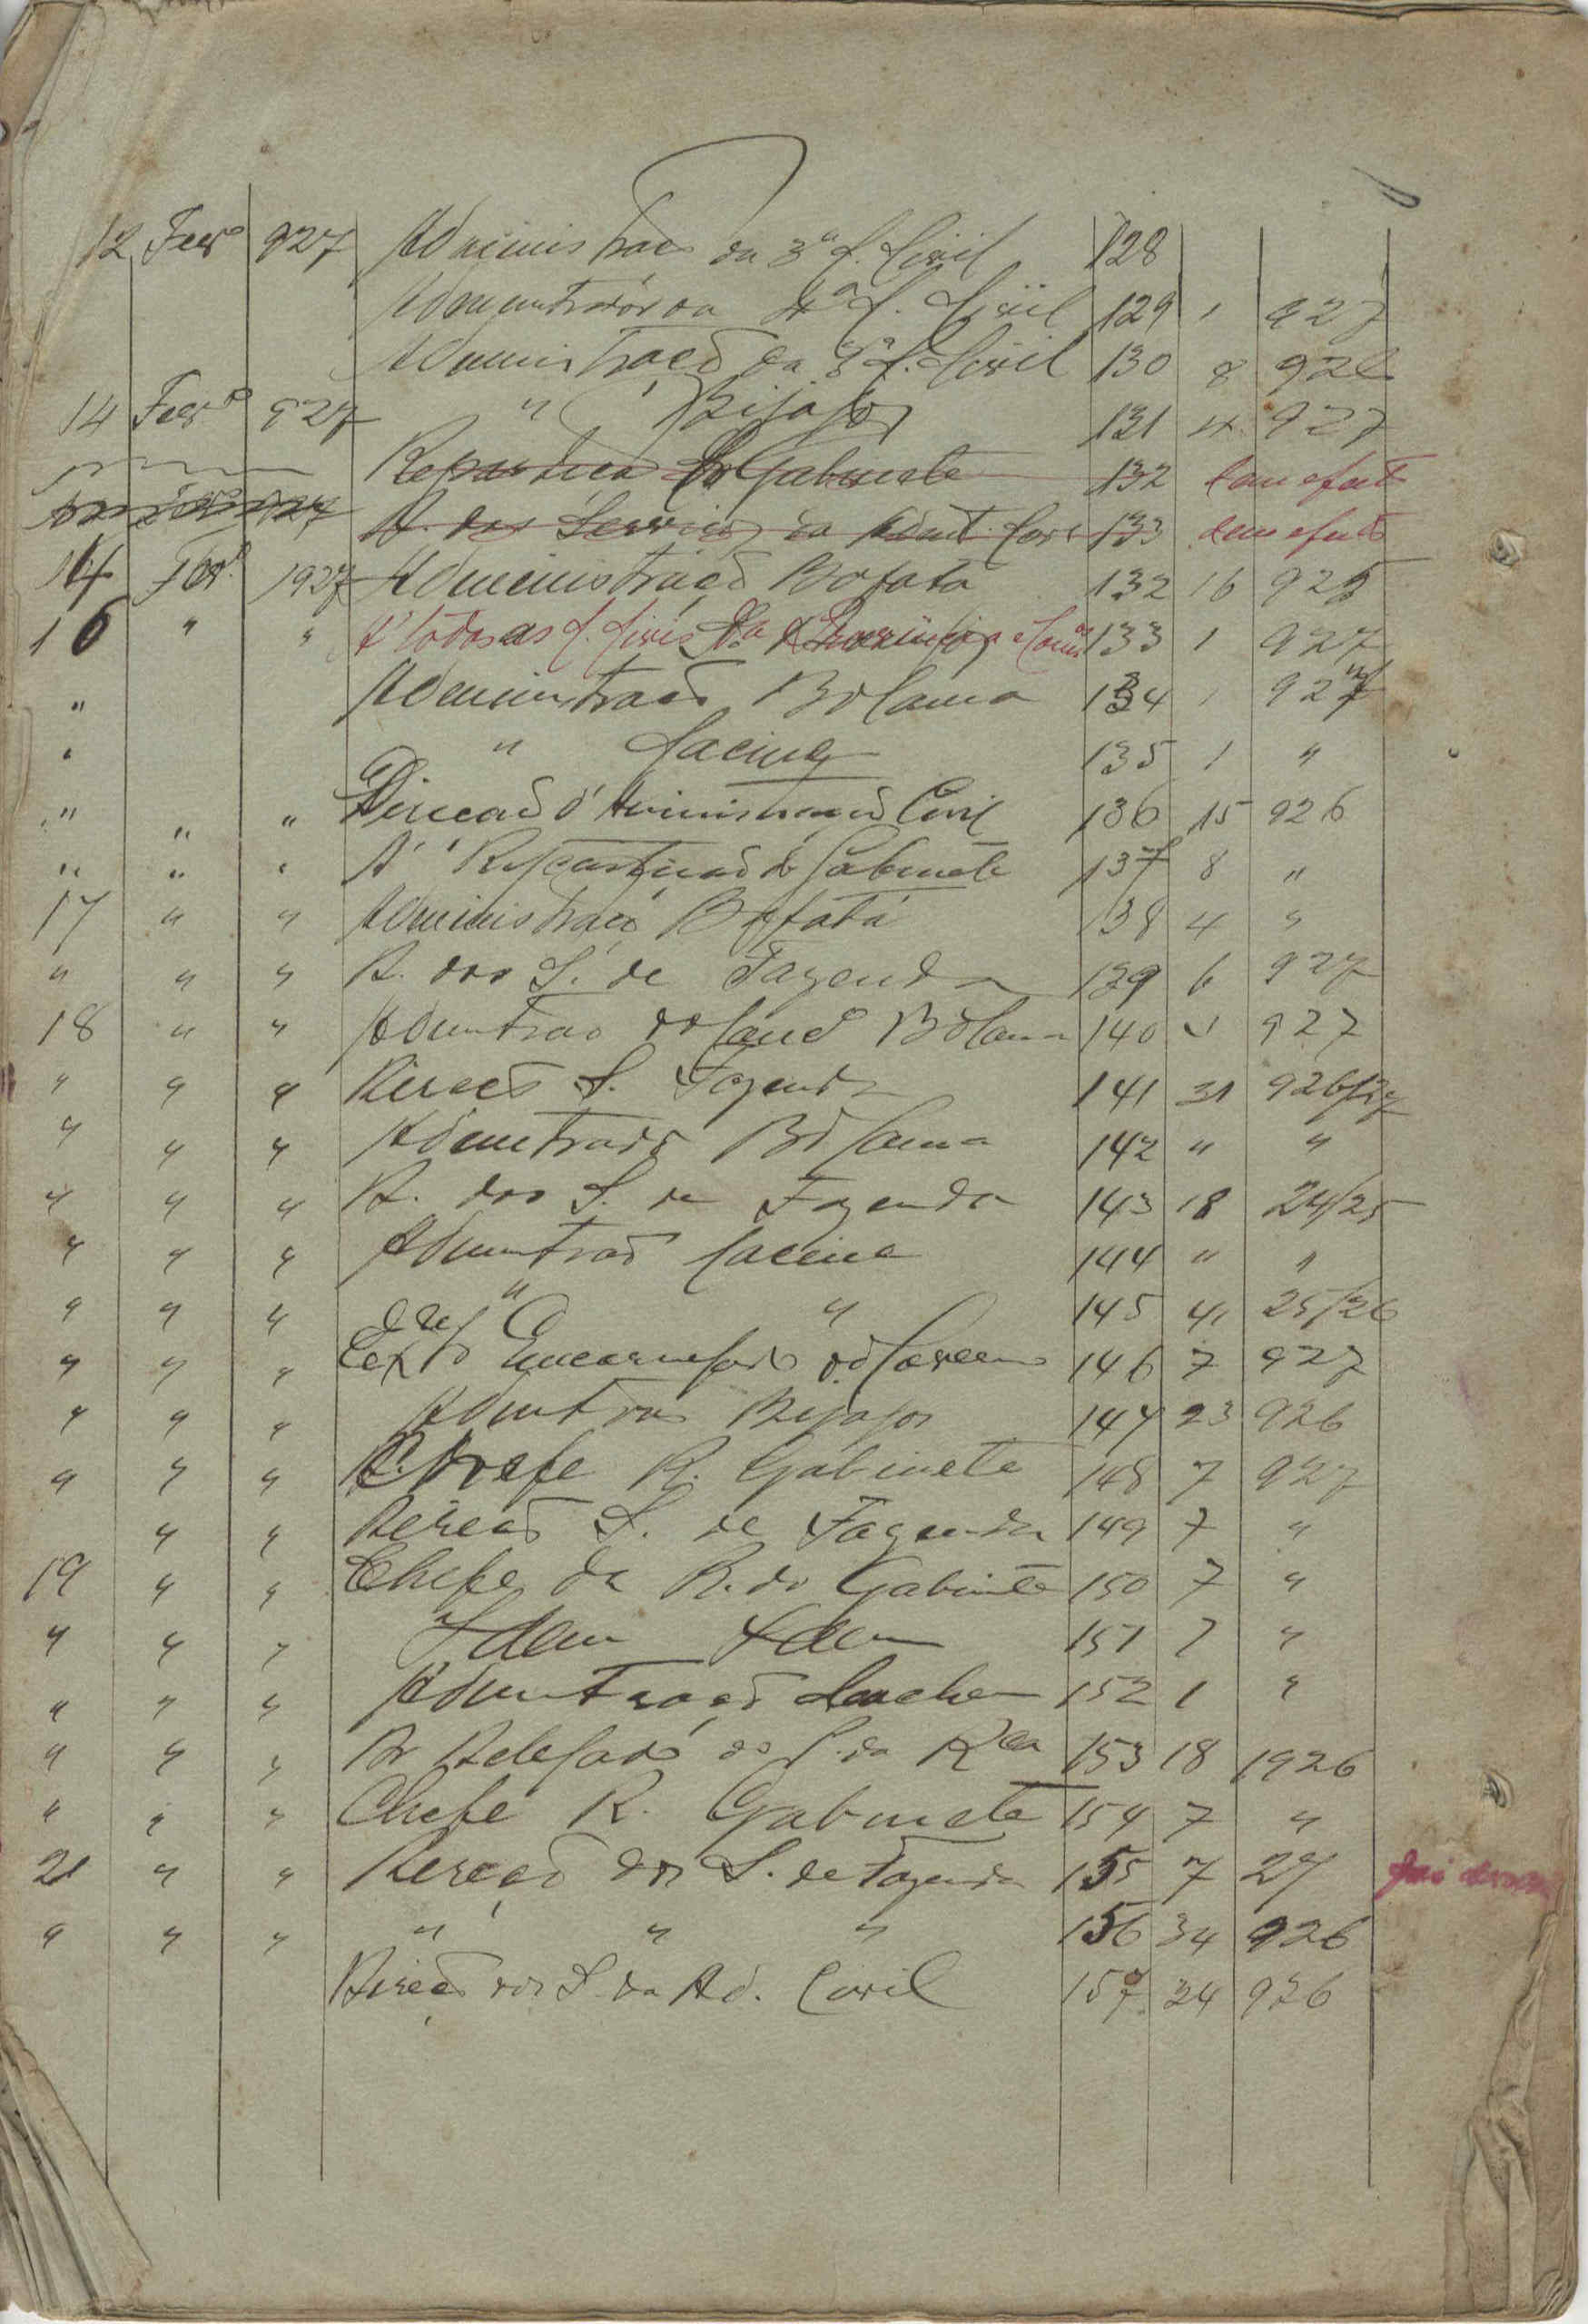 12 Fevº 927 Administração da 3ª C. Civil 128
Administrador da 4ª C. Civil 129 1 927
Administração da 3ª C. Civil 130 8 926
14 Fevº 927 " Bijagoz 131 4 927
Repartição do Gabinete 132 sem efeito
R. dos Serviços da Admt. Civil 133 sem efeito
14 Fevº 1927 Administração Bafatá 132 16 925
16 " " A' todas as C. Civis da Provincia e 133 1 927
" Administração Bolama 134 1 927
" " Cacine 135 1 "
" " " Direcção d'Administração Civil 136 15 926
" " " A' Repartição do Gabinete 137 8 "
17 " " Administração Bafatá 138 4 "
" " " R. dos S. de Fazenda 139 6 927
18 " " Admntração do Bolama 140 1 927
" " " Direcção S. Fazenda 141 31 926/27
" " " Admntrador Bolama 142 " "
" " " R. dos S. de Fazenda 143 18 24/25
" " " Admntração Cacine 144 " "
" " " " " 145 4 25/26
" " " Encarregado do 146 7 927
" " " Admntração Bijagoz 147 23 926
" " " Chefe R. Gabinete 148 7 927
" " Direcção S. de Fazenda 149 7 "
19 " " Chefe da R. do Gabinete 150 7 "
" " " Idem Idem 151 7 "
" " " Admntração 152 1 "
" " " Delegado do P. da Rca 153 18 1926
" " " Chefe R. Gabinete 154 7 "
21 " " Direcção dos S. de Fazenda 155 7 27
" " " " " " 156 34 926
Direcção dos S. da Ad. Civil 157 34 926